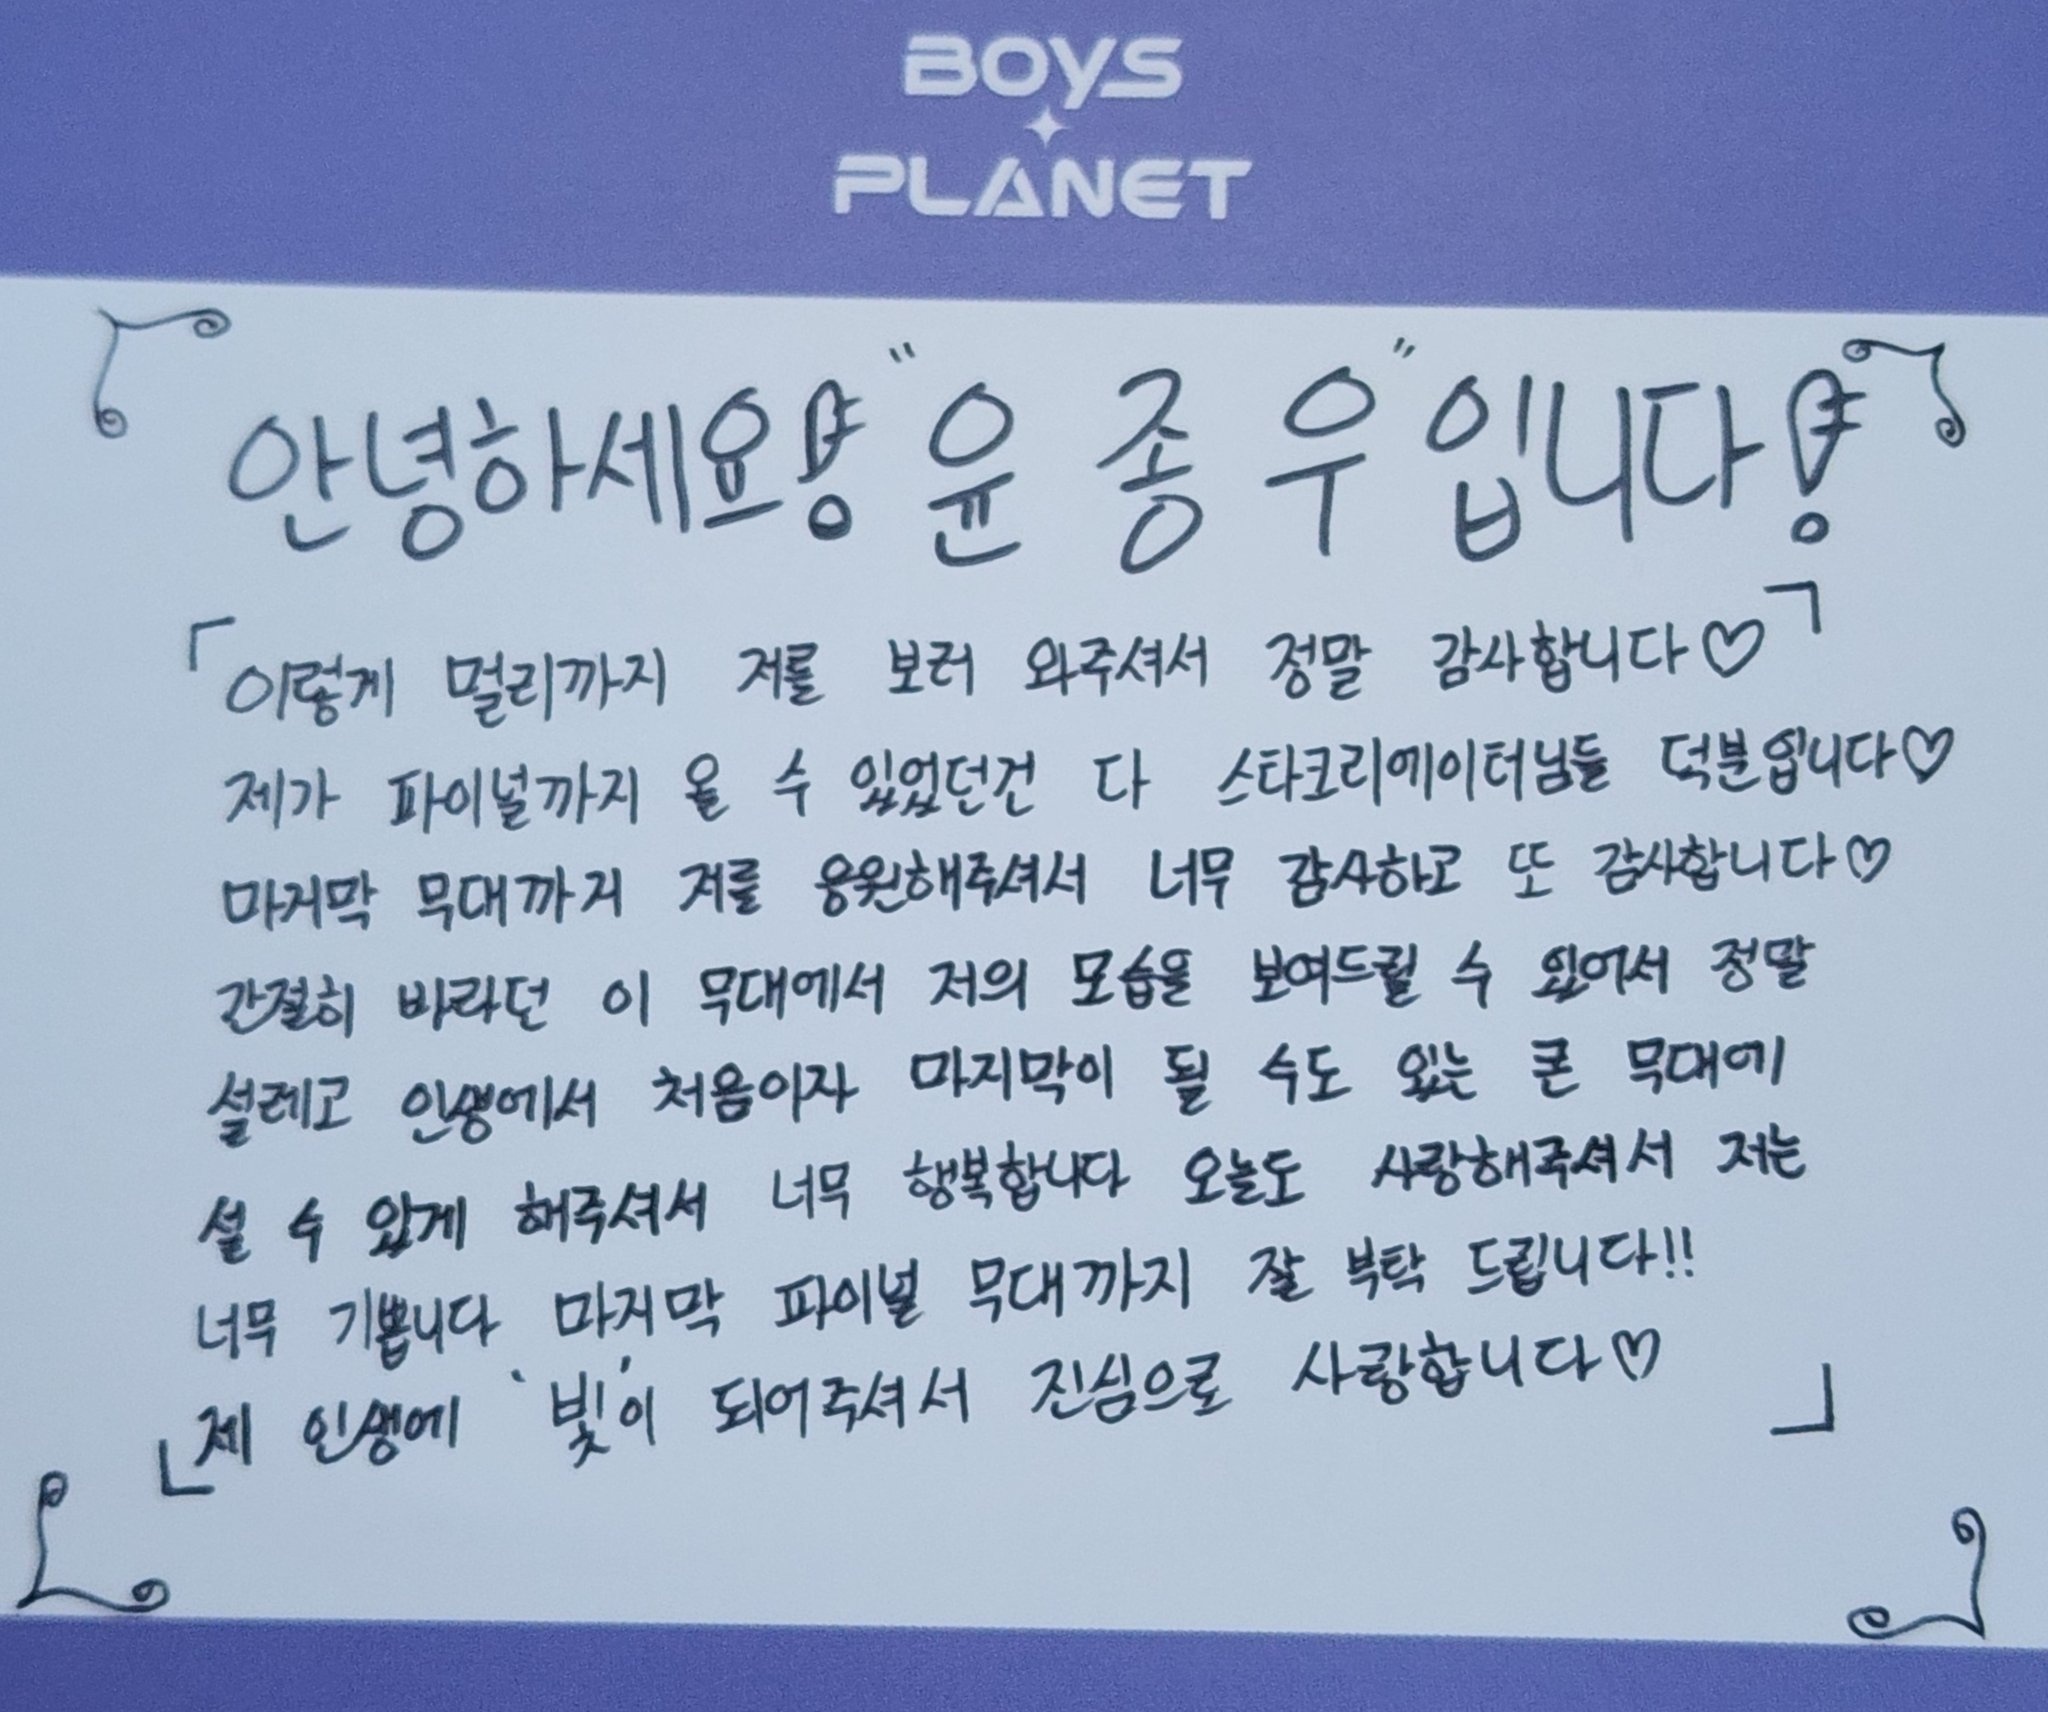 BOYS
PLANET
안녕하세요! "윤종우"입니다!
「이렇게 멀리까지 저를 보러 와주셔서 정말 감사합니다♡」
제가 파이널까지 올 수 있었던건 다 스타크리에이터님들 덕분입니다♡
마지막 무대까지 저를 응원해주셔서 너무 감사하고 또 감사합니다♡
간절히 바라던 이 무대에서 저의 모습을 보여드릴 수 있어서 정말
설레고 인생에서 처음이자 마지막이 될 수도 있는 큰 무대에
설 수 있게 해주셔서 너무 행복합니다 오늘도 사랑해주셔서 저는
너무 기쁩니다 마지막 파이널 무대까지 잘 부탁 드립니다!!
「제 인생에 '빛'이 되어주셔서 진심으로 사랑합니다♡」